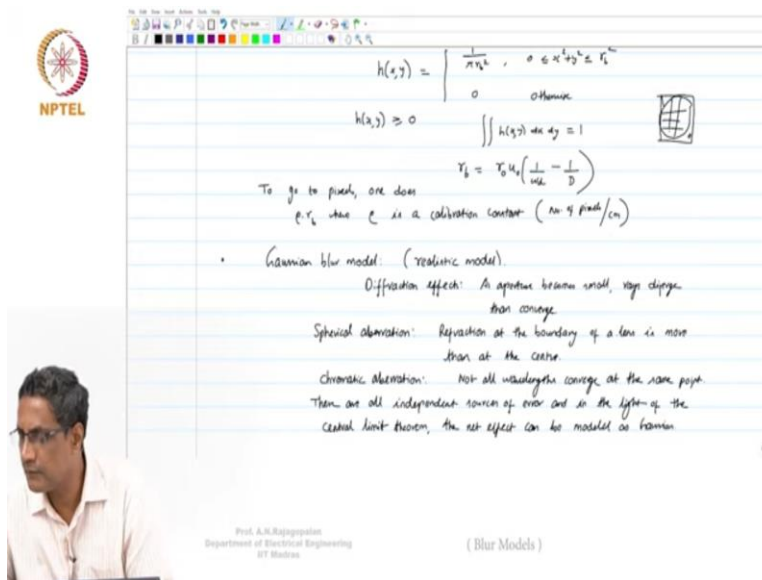 NPTEL
h(x,y) = 1/πr_b² , 0 ≤ x²+y² ≤ r_b²
0 otherwise
h(x,y) ≥ 0 ∬ h(x,y) dx dy = 1
r_b = r_0 u_0 (1/wd - 1/D)
To go to pixels, one does
ρ.r_b where ρ is a calibration constant (No. of pixels/cm)
• Gaussian blur model: (realistic model).
Diffraction effect: As aperture becomes small, rays diverge
than converge
Spherical aberration: Refraction at the boundary of a lens is more
than at the centre.
Chromatic aberration: Not all wavelengths converge at the same point.
These are all independent sources of error and in the light of the
central limit theorem, the net effect can be modeled as Gaussian
Prof. A.N.Rajagopalan
Department of Electrical Engineering
IIT Madras
( Blur Models )